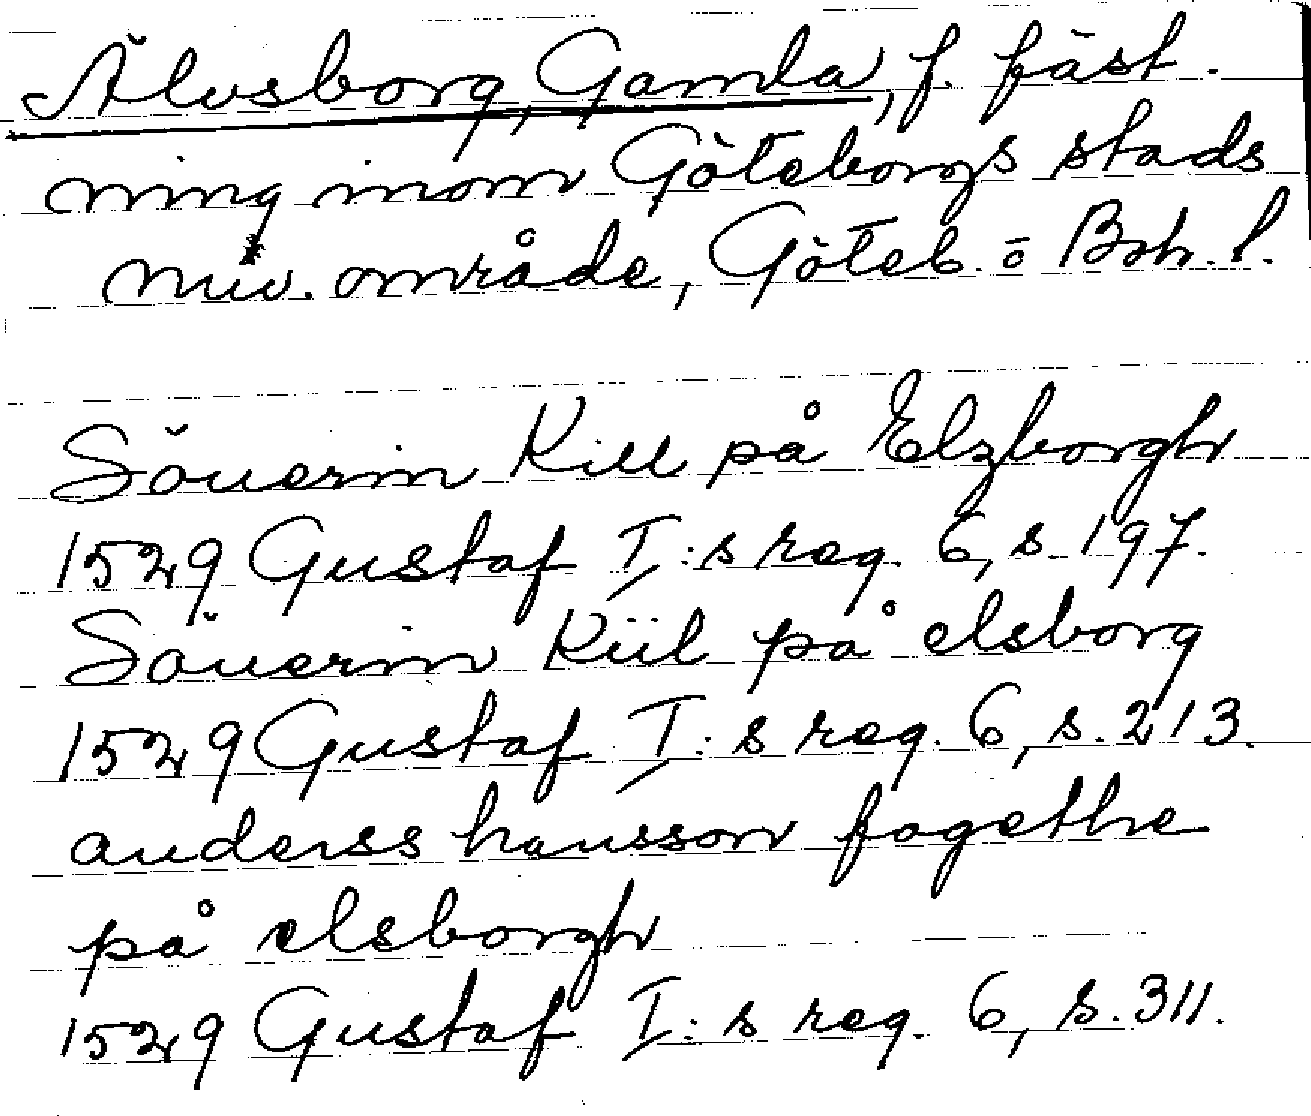 Älvsborg, Gamla, f. fäst-
ning inom Göteborgs stads
nuv. område, Göteb. o Boh. l.
Söuerin Kill på Elzborgh
1529 Gustaf I:s reg. 6, s. 197.
Söuerin Kiil på elsborg
1529 Gustaf I:s reg. 6, s. 213.
anderss hansson fogethe
på elsborgh
1529 Gustaf I:s reg. 6, s. 311.